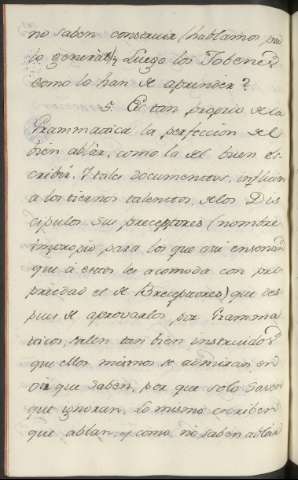 no saben construir (hablamos por
lo general) luego los Jobenes
como lo han de aprender?
5. Es tan propio de la
Grammatica la perfeccion del
bien ablar, como la del buen es-
cribir. Y tales documentos, influien
a los tiernos talentos, de los Dis
cipulos sus preceptores (nombre
impropio para los que asi enseñan
que a estos les acomoda con pro
priedad el de Deceptores) que des
pues de aprovarlos por Gramma
ticos, salen tan bien instruidos
que ellos mismos se admiran, en
que saben, por que solo saven
que ignoran, lo mismo escriben
que ablan, y como no saben ablar